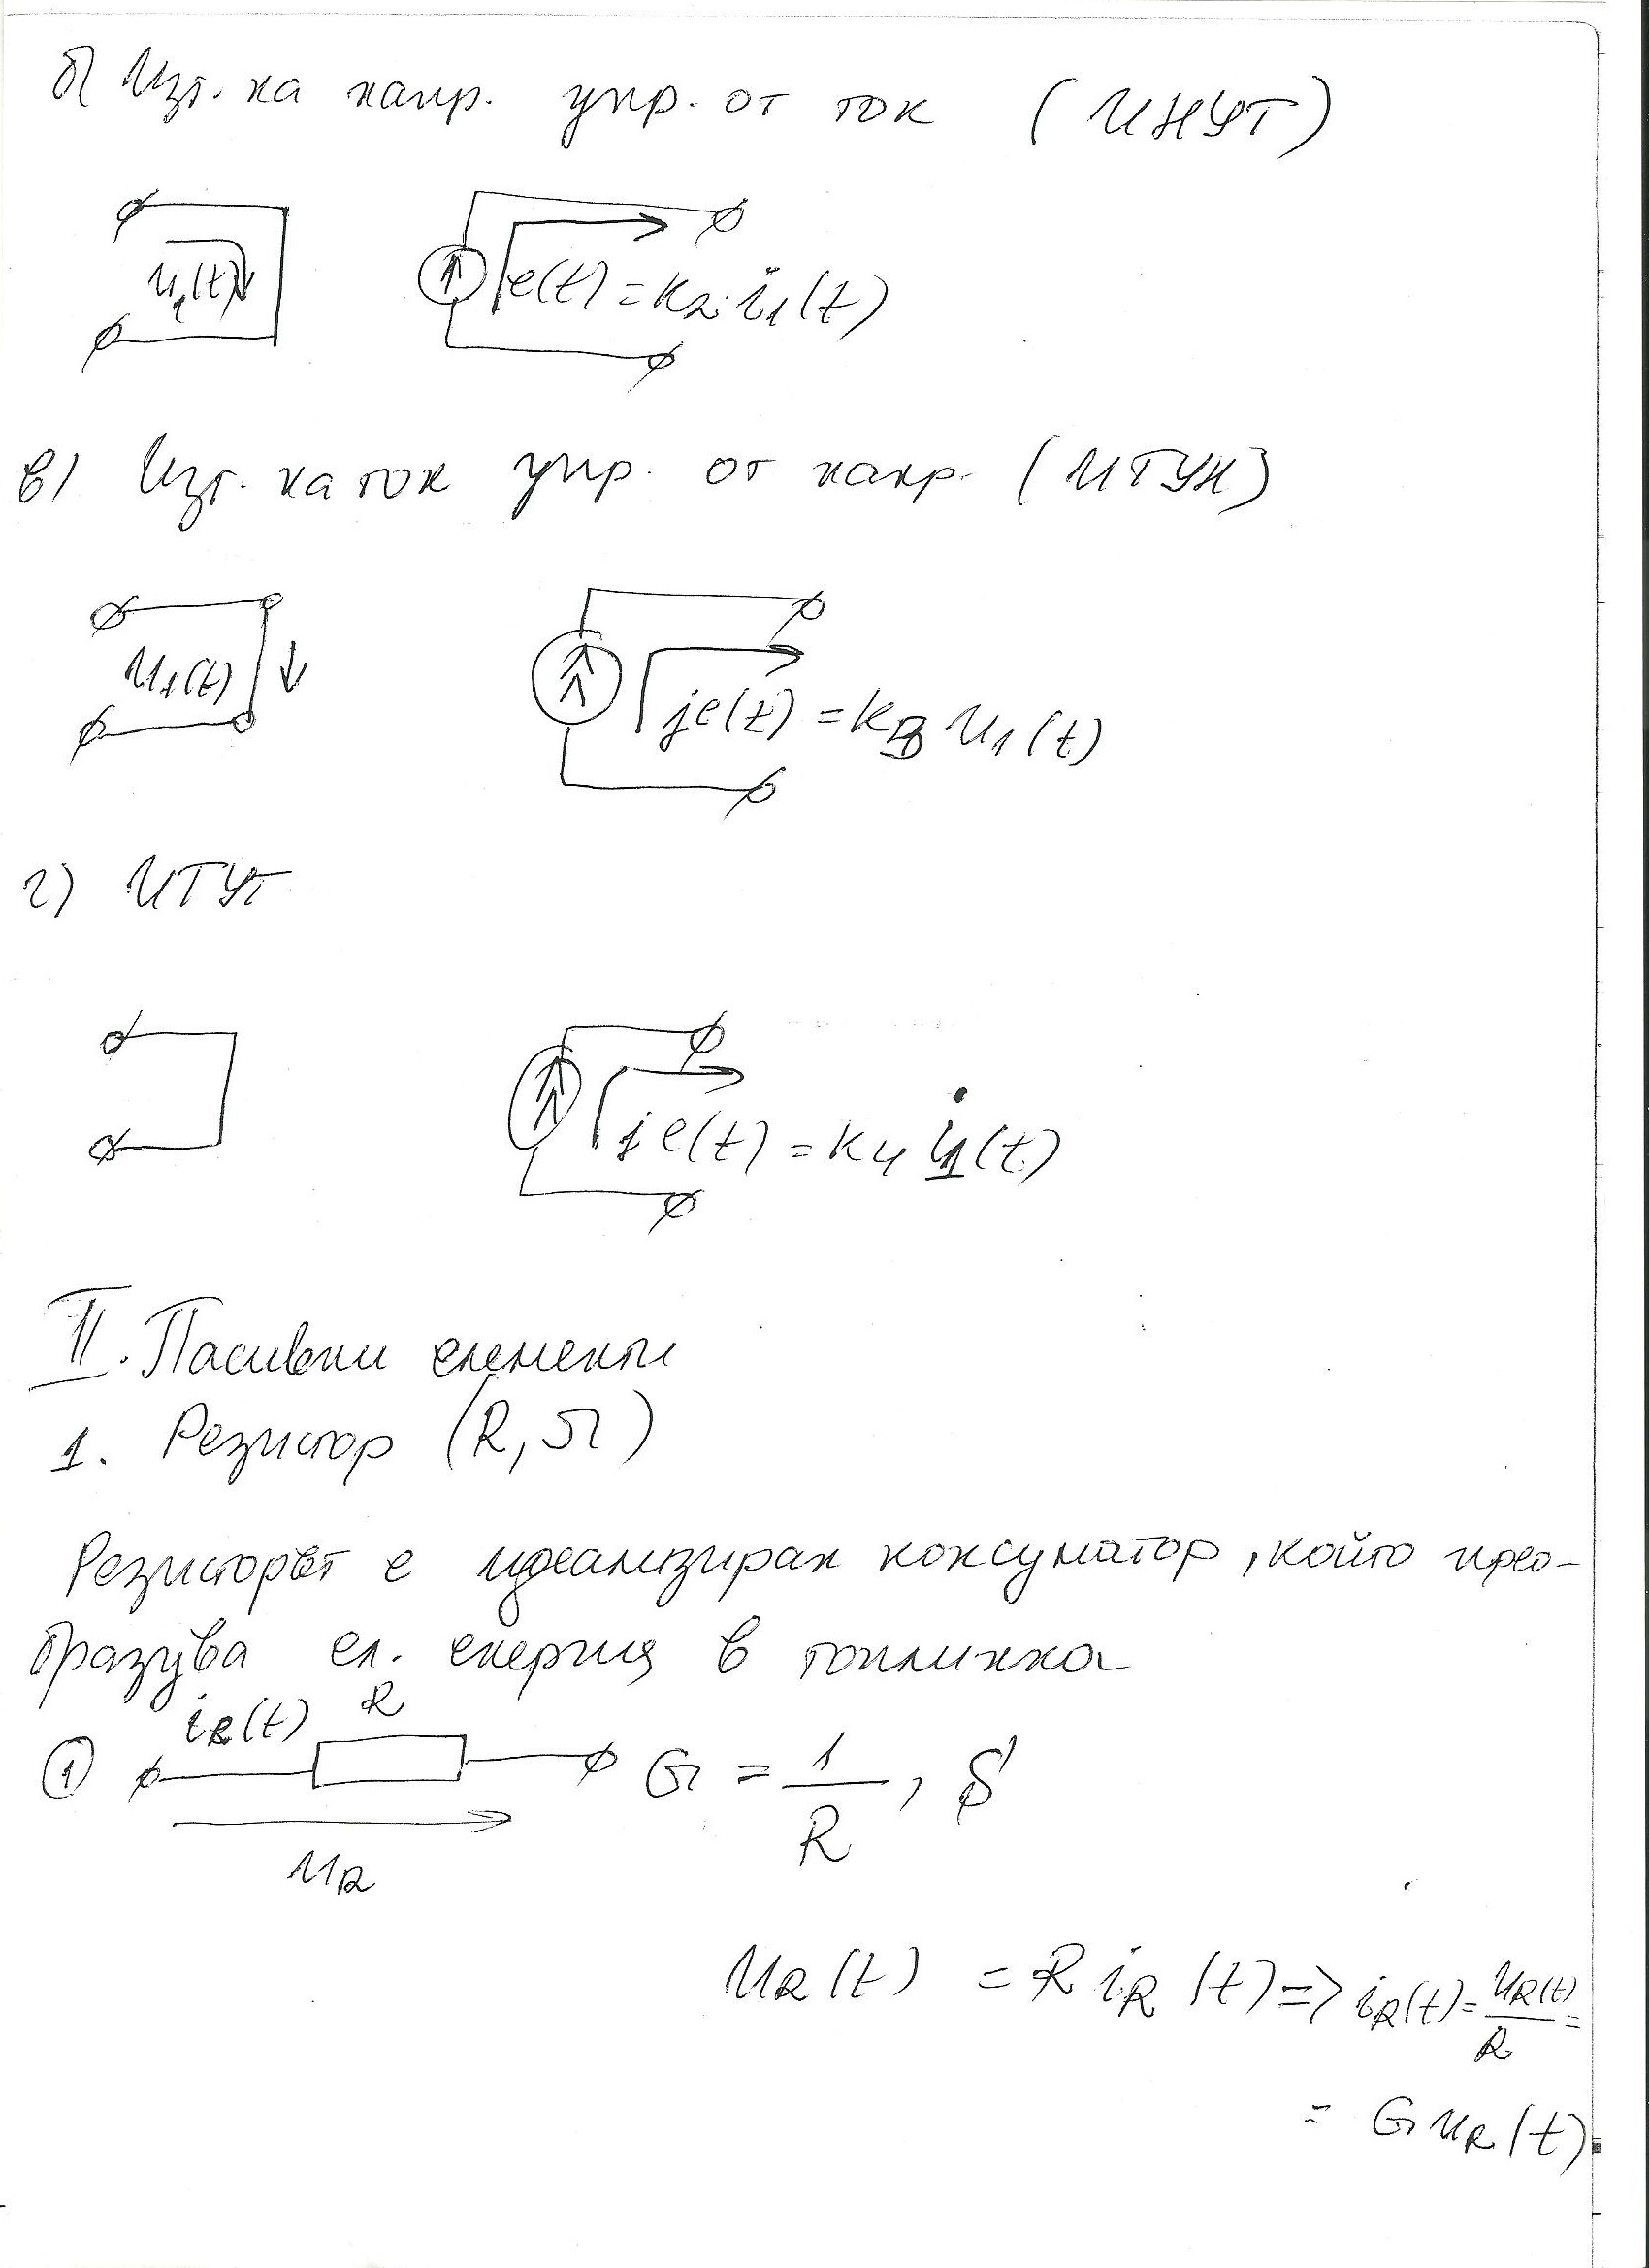 б) Изт. на напр. упр. от ток (ИНУТ)
u₁(t)
e(t) = k₂.i₁(t)
в) Изт. на ток упр. от напр. (ИТУН)
u₁(t)
je(t) = k₃ u₁(t)
г) ИТУТ
je(t) = k₄ i₁(t)
II. Пасивни елементи
1. Резистор (R, Ω)
Резисторът е идеализиран консуматор, който прео-
бразува ел. енергия в топлинна
① iR(t) R G = 1/R, S
uR
uR(t) = R iR(t) => iR(t) = uR(t)/R =
= G uR(t).